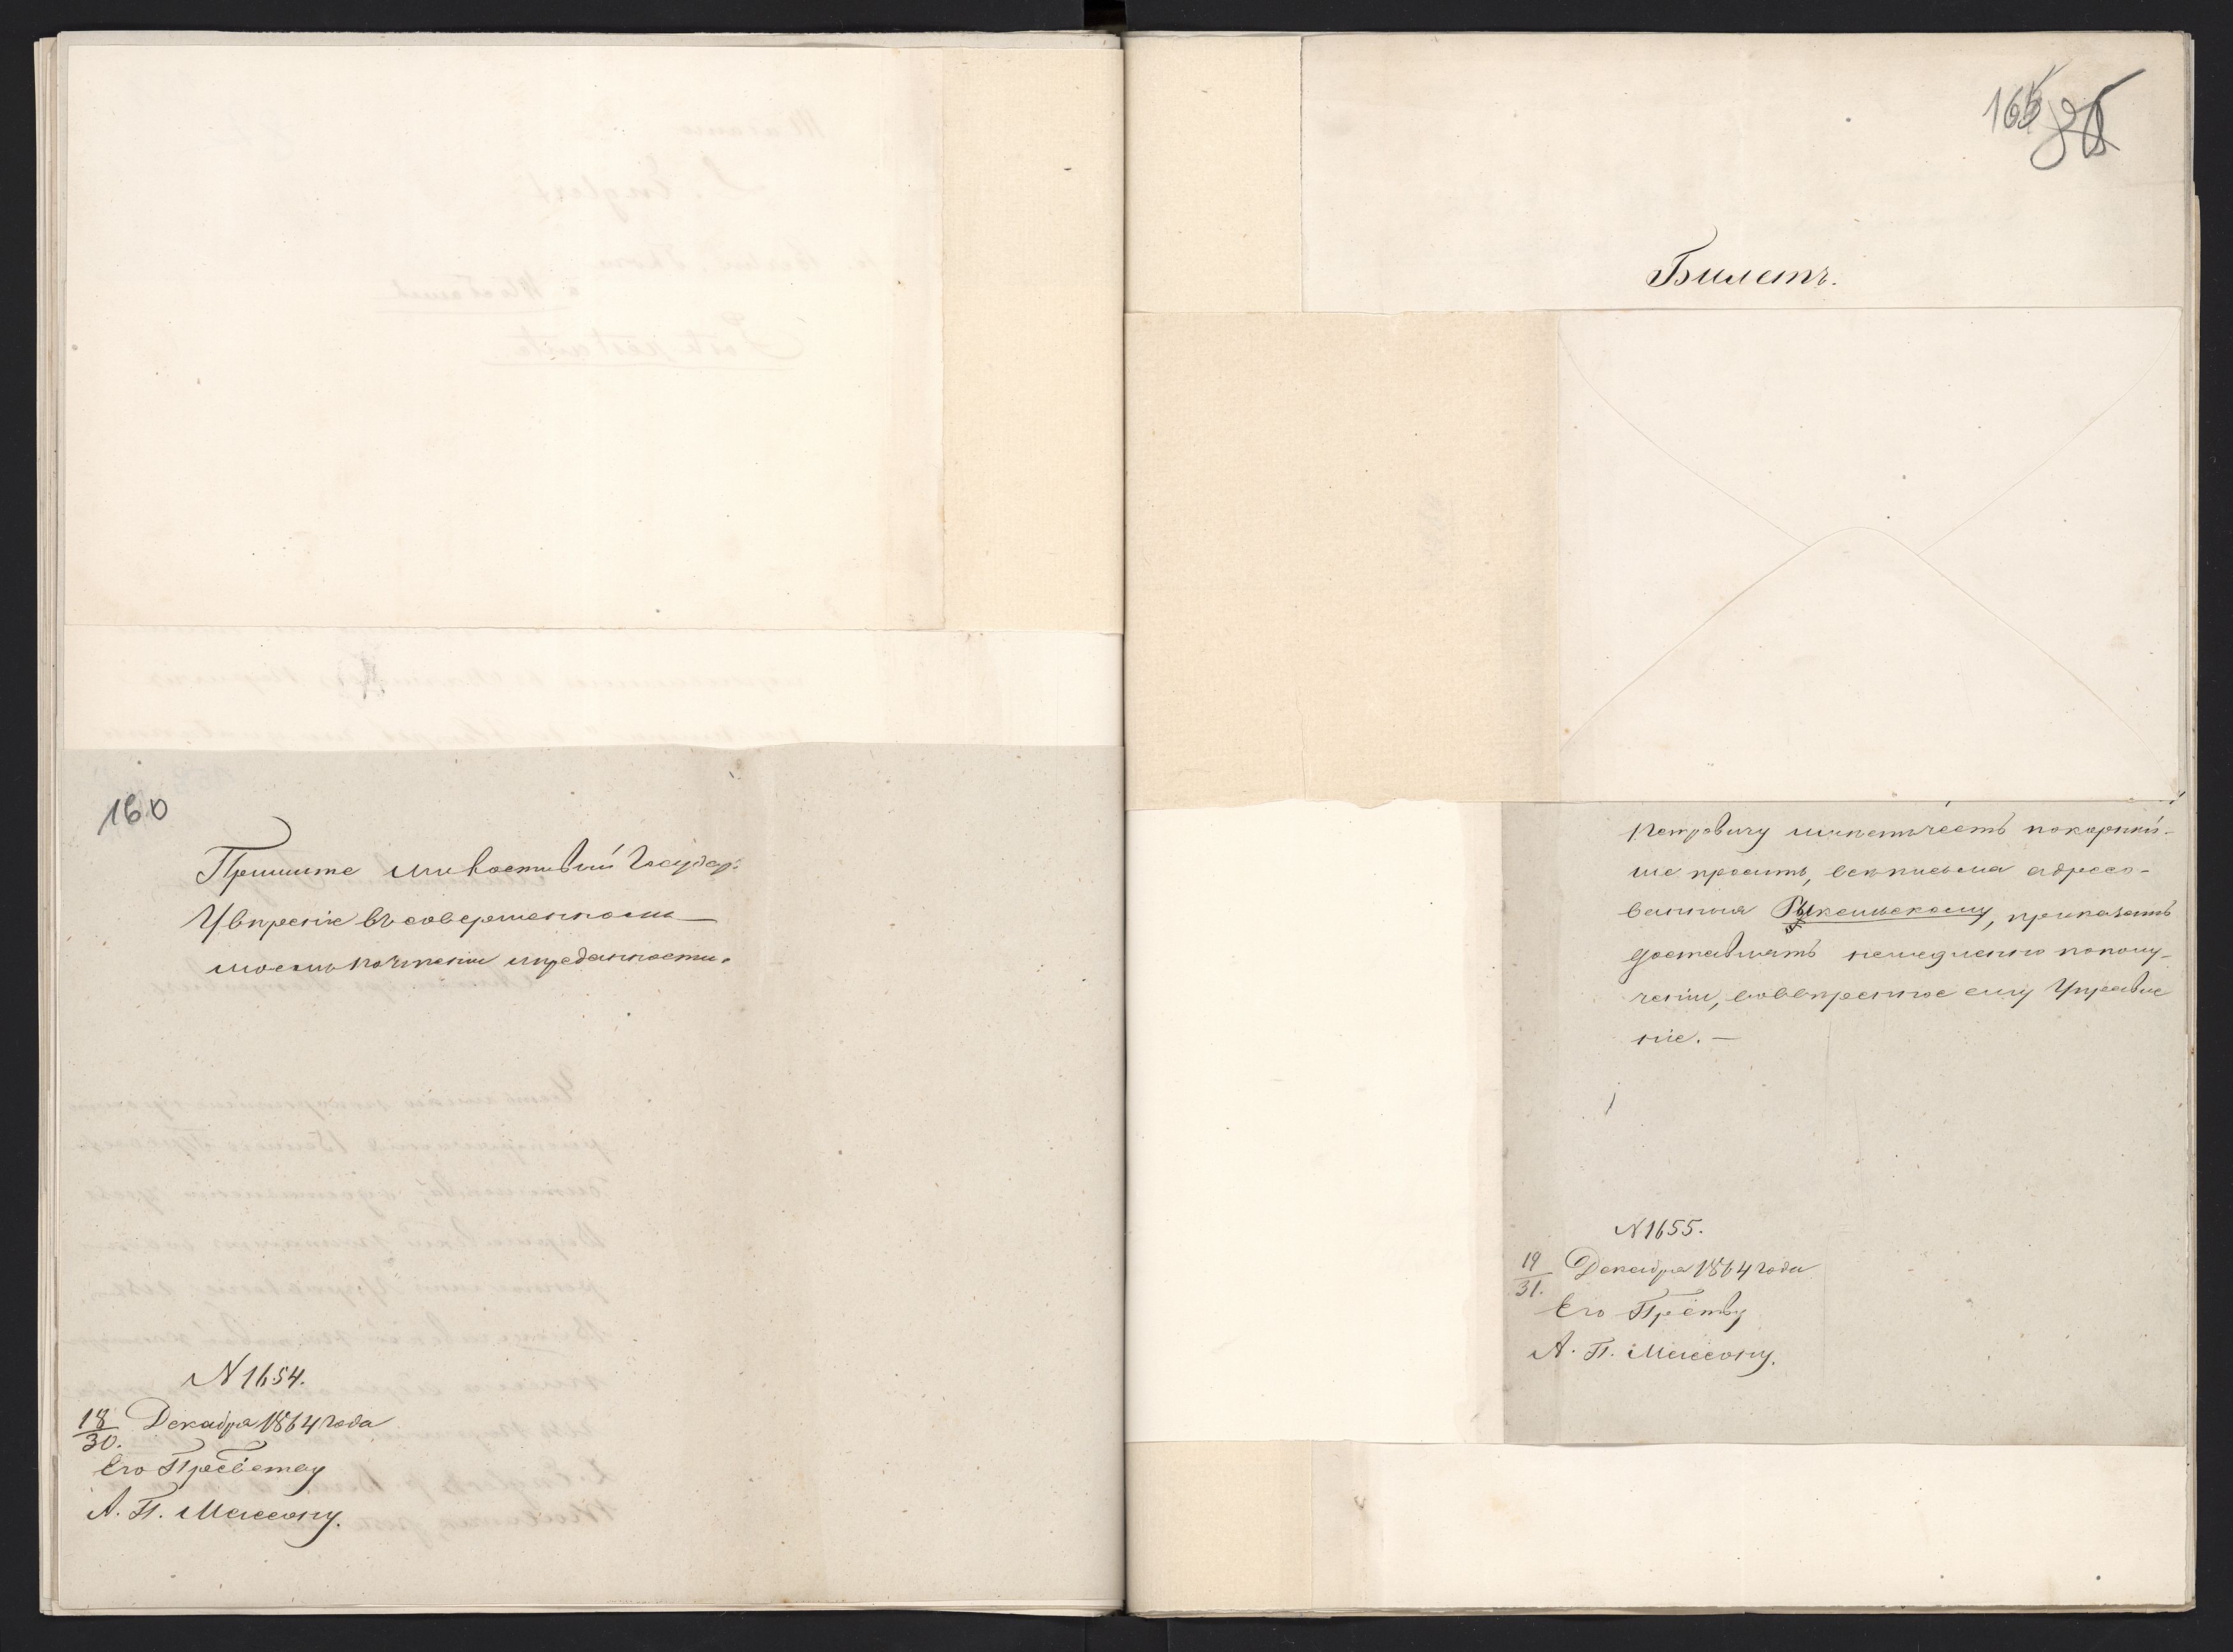 160
Примите милостивый Государь
Увѣреніе въ совершенномъ
моемъ почтеніи и преданности.
N 1654.
18/30. Декабря 1864 года
Его Прев-ству
А. П. Массону.
165
Билетъ.
Петровичу имѣетъ честь покорнѣй-
ше просить, всѣ письма адресо-
ванныя приказать
доставлять немедленно по полу-
ченіи, во ввѣренное ему Управле
ніе. —
N 1655.
19/31. Декабря 1864 года
Его Пр-ству
А. П. Массону.